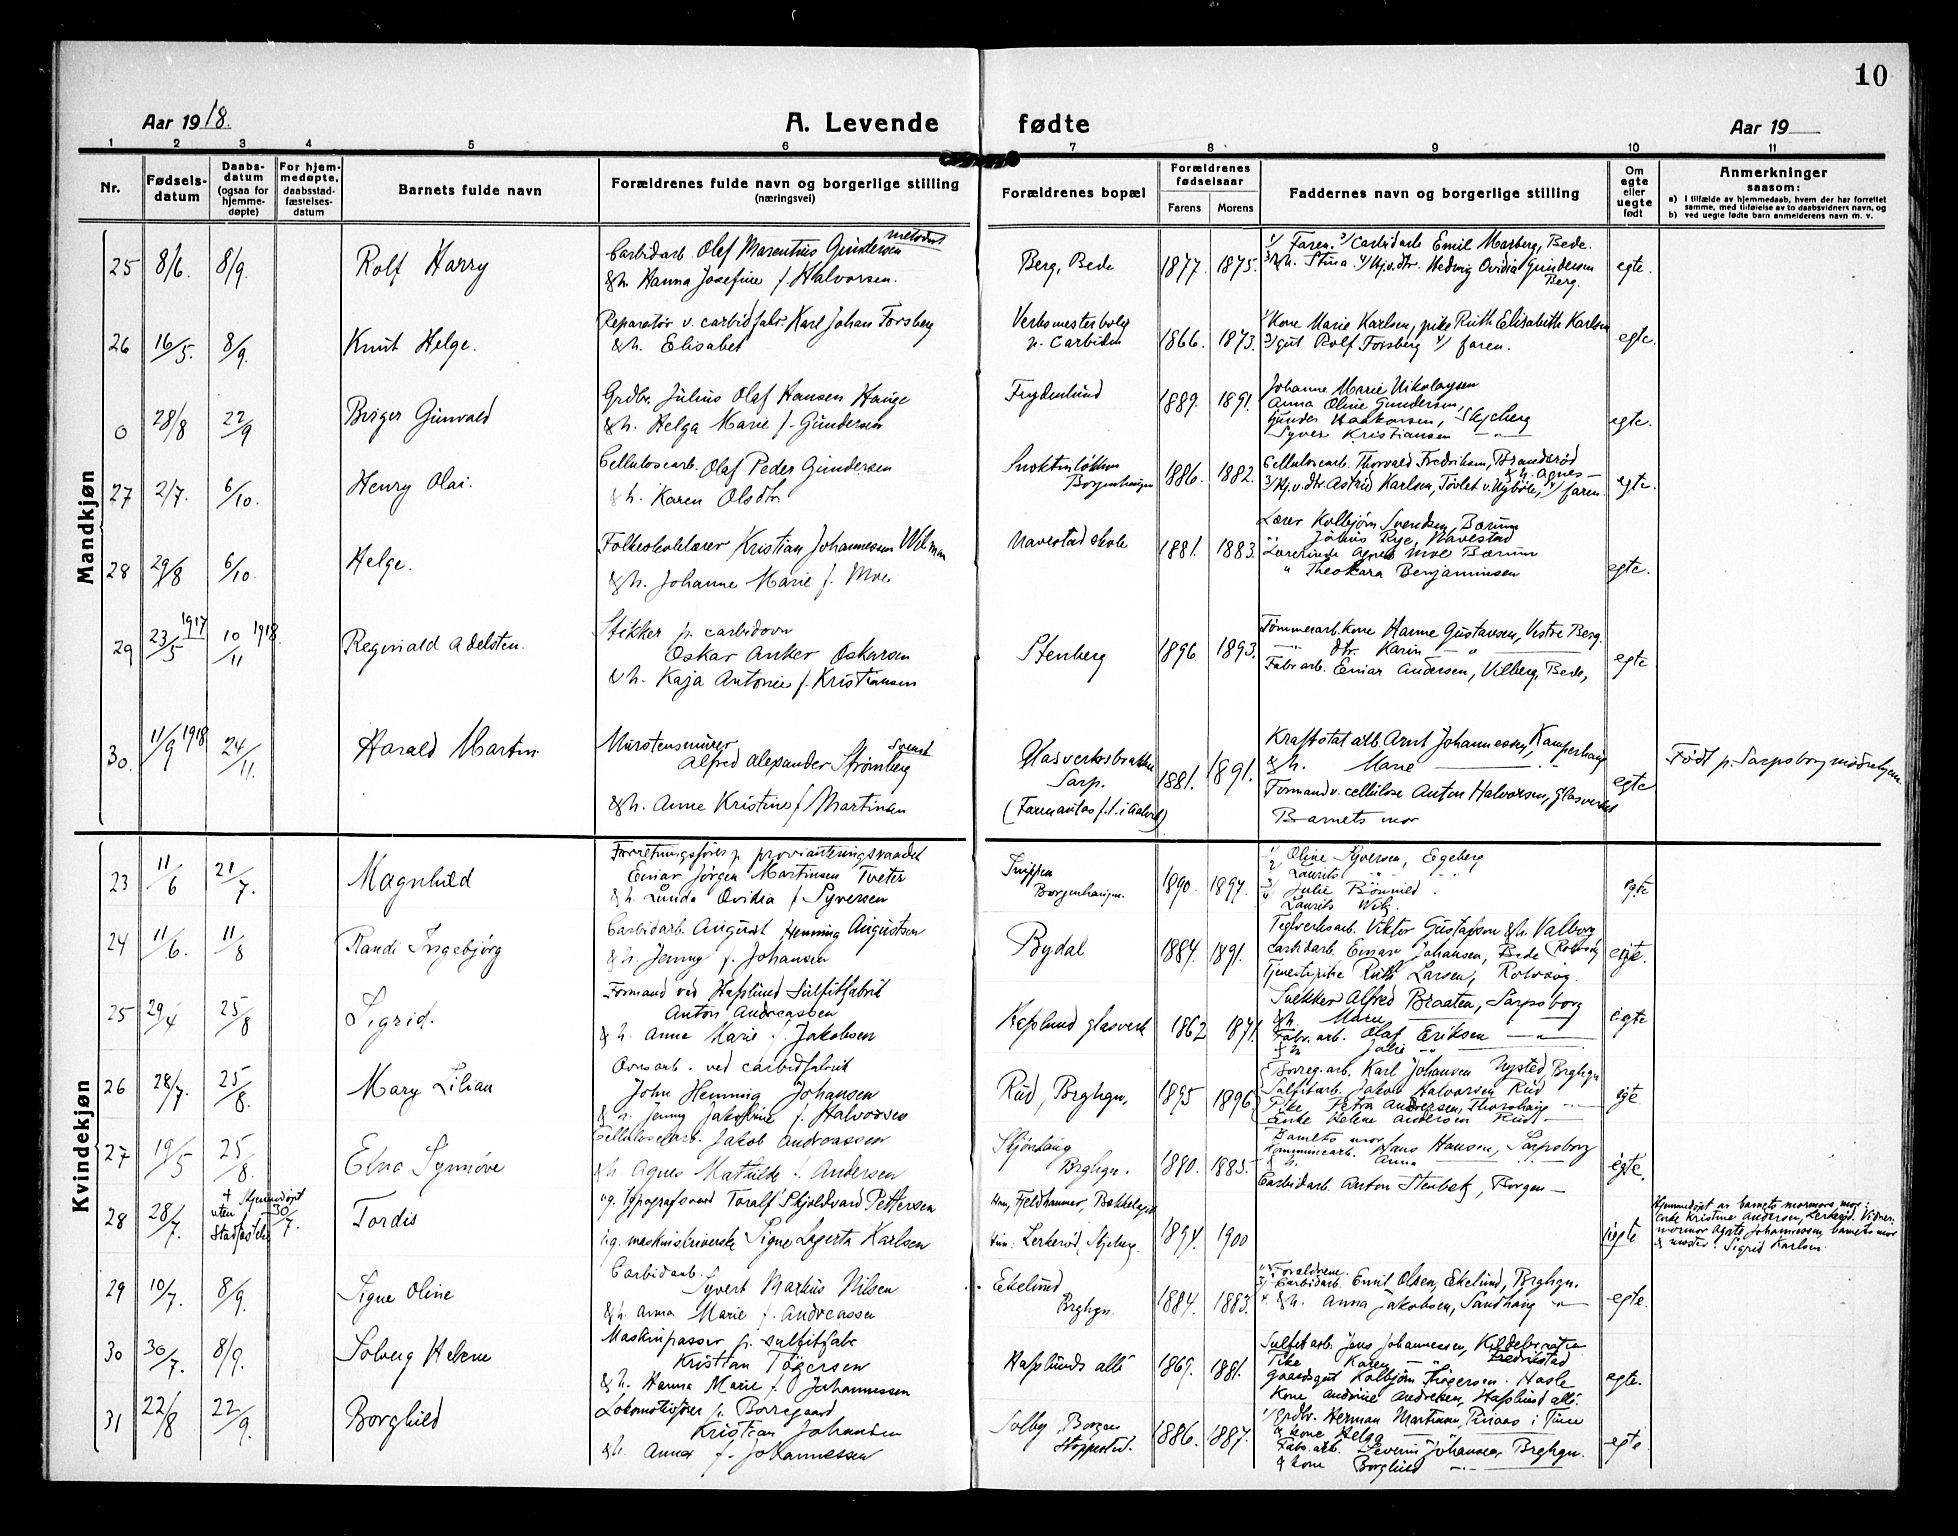 10
Aar 1918.
A. Levende fødte
Aar 19
1 2 3 4 5 6 7 8 9 10 11
Nr.
Fødsels-datum
Daabs-datum (ogsaa for hjemme-døpte)
For hjem-medøpte, daabsstad-fæstelses-datum
Barnets fulde navn
Forældrenes fulde navn og borgerlige stilling (næringsvei)
Forældrenes bopæl
Forældrenes fødselsaar
Farens. Morens
Faddernes navn og borgerlige stilling
Om egte eller uegte født
Anmerkninger saasom:
a) I tilfælde av hjemmedaab, hvem der har forrettet samme, med tilføielse av to daabsvidners navn, og
b) ved uegte fødte barn anmelderens navn m. v.
Mandkjøn
25 8/6. 8/9. Rolf Harry
Carbidarb Olaf Marentius Gundersen metodist
&h. Hanna Josefine f. Halvorsen.
Berg, Bede 1877. 1875.
1/ Faren. 2/ Carbidarb Emil Marberg, Bede.
3/ &h. Stina 4/ Hj.v.dtr. Hedvig Ovidia Gundersen
Berg.
egte.
26 16/5. 8/9. Knut Helge.
Reparatør v. carbidfabr. Karl Johan Forsberg
&h. Elisabet
Verksmesterbolig
v. Carbiden 1866. 1873.
1/ Kone Marie Karlsen, pike Ruth Elisabeth Karlsen
3/ gut Rolf Forsberg 4/ faren.
egte.
0 28/8 22/9 Birger Gunvald
Grdbr. Julius Olaf Hansen Hauge
&h. Helga Marie f. Gundersen
Frydenlund 1889. 1891.
Johanne Marie Nikolaysen
Anna Oline Gundersen,
Gunder Haakonsen, Skjeberg
Syver Kristiansen
egte.
27 2/7. 6/10. Henry Olai.
Cellulosearb. Olaf Peder Gundersen
&h. Karen Olsdtr
Borgenhaugen 1886. 1882.
Cellulosearb. Thorvald Fredriksen, Brandsrød
&h. Agnes
3/ Hj.v.dtr Astrid Karlsen, 4/ faren.
egte.
28 29/8 6/10. Helge.
Folkeskolelærer Kristian Johannessen Wilman
&h. Johanne Marie f. Moe
Navestad skole 1881. 1883.
Lærer Kolbjørn Svendsen, Bærum
" Johns Rye, Navestad
Lærerinde Agnes Moe Bærum
" Theokara Benjaminsen
egte.
29 23/5 1917 10/11 1918. Reginald Adelsten.
Stikker p. carbidovn
Oskar Anker Oskarsen
&h. Kaja Antonie f. Kristiansen
Stenberg 1896 1893.
Tømmerarb. kone Hanne Gustavsen, Vestre Berg.
dtr. Karin "
Fabr arb. Einar Andersen, Vilberg, Bede,
egte
30. 11/9 1918 24/11. Harald Martin
Murstensmurer
Alfred Alexander Strømberg Svensk
&h. Anne Kristine f. Martinsen
Glasverksbrakken
Sarp.
1881. 1891.
Kraftstat. arb. Arnt Johannessen, Kamperhaug
&h. Marie
Formand v. cellulose Anton Halvorsen, Glasverket
Barnets mor
egte
Født p. Sarpsborg mødrehjem
Kvindekjøn
23 11/6 21/7. Magnhild
Forretningsfører p. provianteringsraadet
Einar Jørgen Martinsen Tveter
&h. Lunda Ovidia f Syversen
Borgenhaugen. 1890. 1897.
1/ Oline Syversen, Egeberg
2 Laurits " "
3/ Julie Bønnild.
4 Laurits Wik.
egte
24 11/6. 11/8 Randi Ingebjørg
Carbidarb. August Henning Augustson
&h. Jenny f. Johansen
Bydal 1884. 1891.
Teglverksarb. Viktor Gustafson &h. Valborg
carbidarb. Einar Johansen, Bede Rolvsøy
Tjenestepike Ruth Larsen, Rolvsøy.
egte.
25 29/4 25/8 Sigrid.
Formand ved Hafslund Sulfitfabrik
Anton Andreassen
&h. Anne Marie f. Jakobsen
Hafslund glasverk 1862 1871.
Snekker Alfred Braaten, Sarpsborg
&h. Marie
Fabr. arb. Olaf Eriksen "
&h Julie "
egte
26 28/7. 25/8. Mary Lilian
Ovnsarb. ved carbidfabrik
John Henning Johansen
&h. Jenny Jakobine f. Halvorsen
Rud, Brghgn, 1895 1896.
Borreg. arb. Karl Johansen Nysted, Brghgn
Sulfitarb. Jakob Halvorsen Rud
Pike Petra Andersen, Thorshaug
Enke Helene Andersen Rud
27 19/5 25/8. Elna Synnøve
Cellulosearb. Jakob Andreassen
&h Agnes Mathilde f. Andersen
Brghgn. 1880. 1885.
Barnets mor
Kommunearb. Hans Hansen, Sarpsborg
&h. Anna
Carbidarb. Anton Stenbek, Borgen
egte.
28 28/7. 30/7. Tordis
ug. Typografsvend Toralf Skjoldvard Pettersen
ug. maskinskriverske Signe Lagerta Karlsen
Han, Fjeldhammer, Bækkelaget
Hun: Lerkerød, Skjeberg. 1894. 1900
uegte
Hjemmedøpt av barnets mormors mor:
Enke Kristine Andersen, Lerkerød. Vidner:
mormor Agnte Johannessen, barnets mor
& moster: Sigrid Karlsen.
29 10/7. 8/9. Signe Oline
Carbidarb.
Syvert Markus Nilsen
&h. Anna Marie f. Andreassen
Ekelund
Brghgn. 1884. 1883.
Forældrene.
3/ Carbidarb. Emil Olsen, Ekelund, Brghgn.
4. &h. Anna Jakobsen, Sandhaug "
egte.
30 30/7. 8/9. Solveig Helene
Maskinpasser p. sulfitfabr
Kristian Tøgersen
&h. Hanna Marie f. Johannessen
Hafslunds allé 1869. 1881.
Sulfitarb. Jens Johannessen,
Fredrikstad
Pike Karen "
Gaardsgut Kolbjørn Tøgersen. Hasle
Kone Andrine Andresen, Hafslund allé.
egte.
31 22/8 22/9. Borghild
Lokomotivfører p. Borregaard
Kristian Johansen
&h. Anna f. Johannessen
Solby Borgen
Stoppested. 1886. 1887.
1/ Grdbr. Herman Martinsen, i Tune
& kone Helga
Fabr. arb. Severin Johansen, Brghgn.
& kone Borghild "
egte